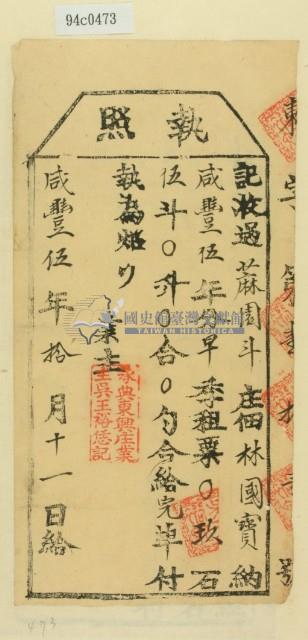 94c0473
執照
記收過蔴園斗庄佃林國寶納
咸豐伍年分早季租粟〇玖石
伍斗〇升〇合〇勺合給完单付
執為炤
業主
承典東興庄業
主吳王裕惷記
咸豐伍年拾月十一日給
東字第
號
國史館臺灣文獻館
TAIWAN HISTORICA
473